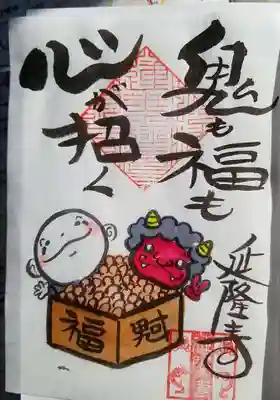 鬼も福も
心が招く
延隆寺
福 財